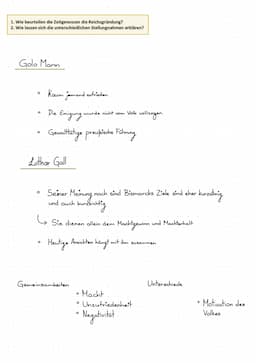 1. Wie beurteilen die Zeitgenossen die Reichsgründung?
2. Wie lassen sich die unterschiedlichen Stellungnahmen erklären?
Golo Mann
• Kaum jemand zufrieden
• Die Einigung wurde nicht vom Volk vollzogen
• Gewalttätige preußische Führung
Lothar Gall
• Seiner Meinung nach sind Bismarcks Ziele eher kurzatmig
und auch kurzsichtig
↳ Sie dienen allein dem Machtgewinn und Machterhalt
• Heutige Ansichten hängt mit ihm zusammen
Gemeinsamkeiten
• Macht
• Unzufriedenheit
• Negativität
Unterschiede
• Motivation des
Volkes